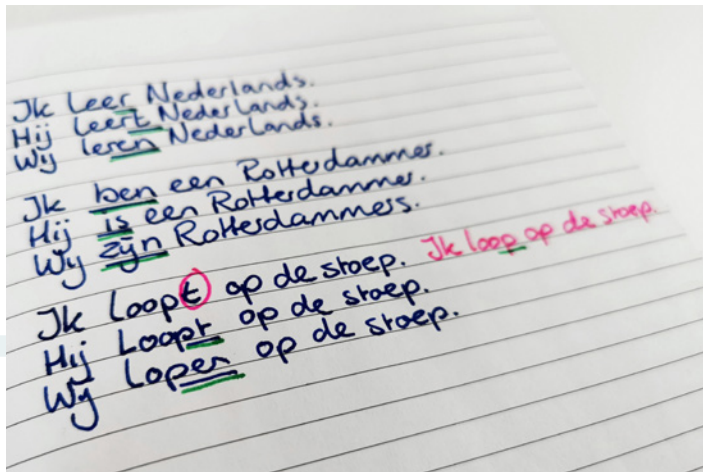 Ik leer Nederlands.
Hij leert Nederlands.
Wij leren Nederlands.
Ik ben een Rotterdammer.
Hij is een Rotterdammer.
Wij zijn Rotterdammers.
Ik loopt op de stoep. Ik loop op de stoep.
Hij loopt op de stoep.
Wij lopen op de stoep.